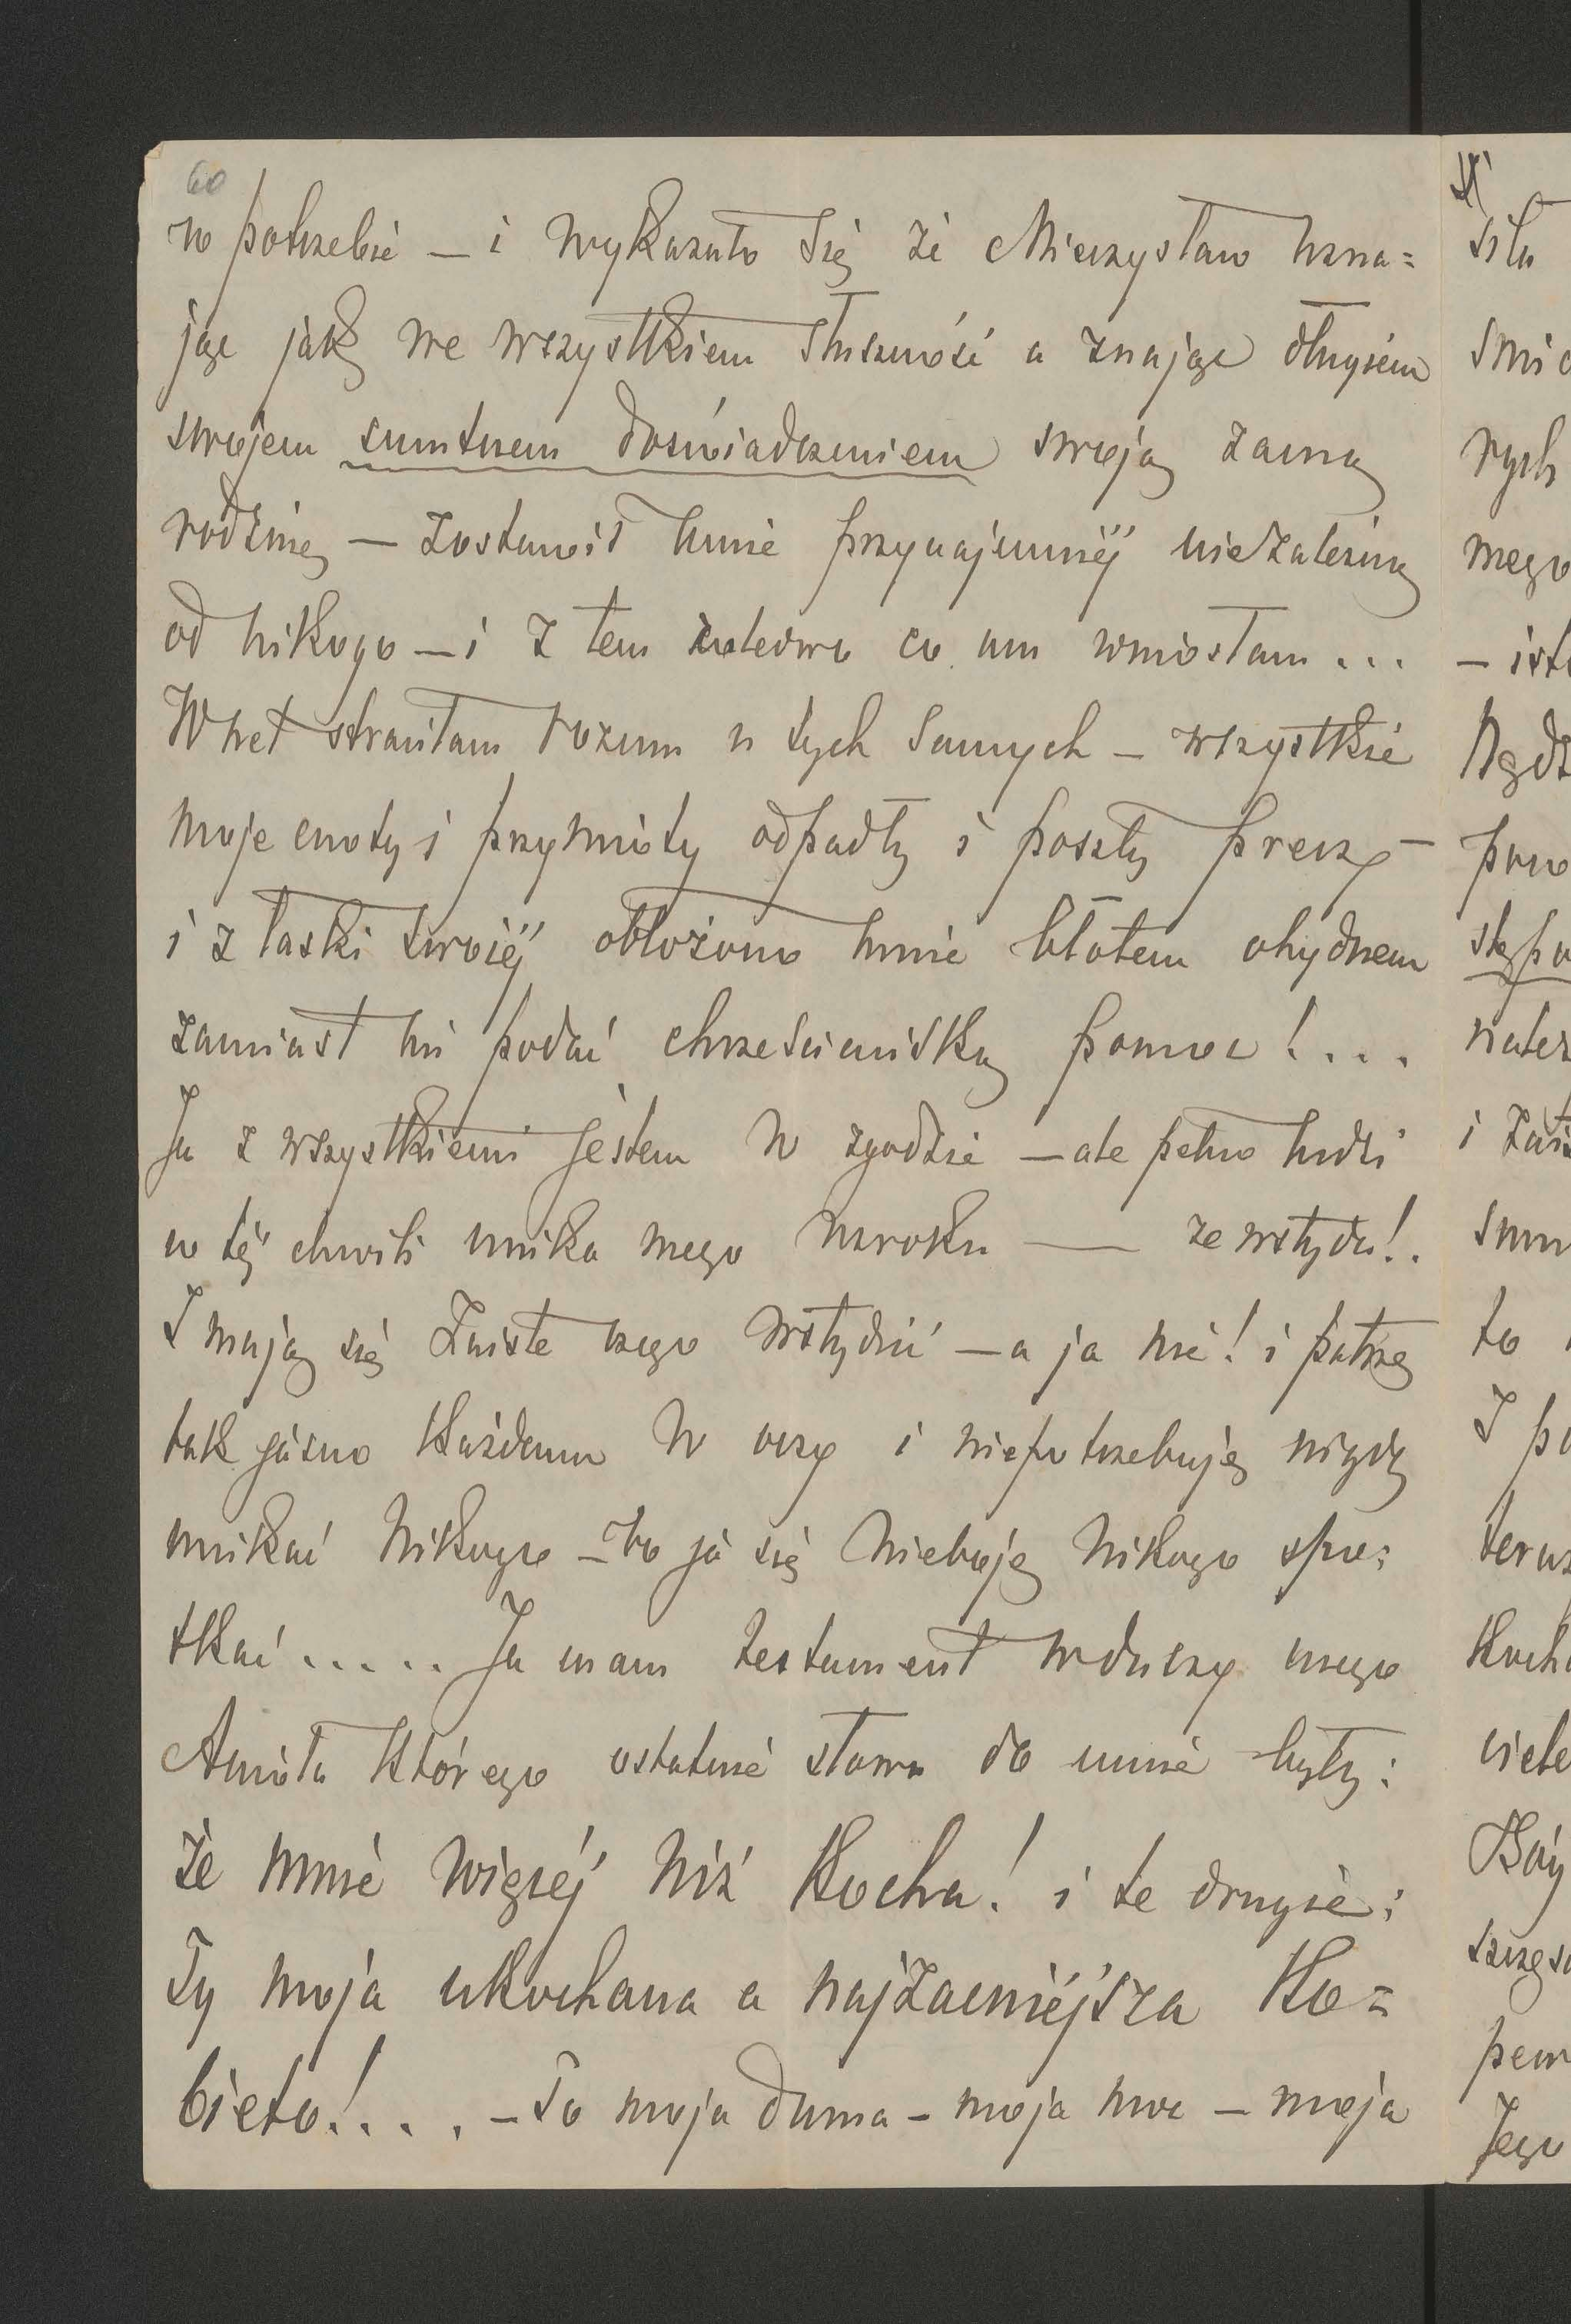 60
w potrzebie – i wykazało się że Mieczysław uzna=
jąc jak we wszystkiem słuszność a znając długiem
swojem smutnem doświadczeniem swoją zacną
rodzinę – zostawił mnie przynajmniéj niezależną
od nikogo – i z tem co um wniosłam ...
Wnet straciłam rozum u tych samych – wszystkie
moje cnoty i przymioty odpadły i poszły precz –
i z łaski swojéj obłożono mnie błotem ohydnem
zamiast mi podać chrześciańską pomoc! ...
Ja z wszystkiemi jestem w zgodzie – ale pełno ludzi
w téj chwili unika mego wzroku — ze wstydu!.
I mają się zaiste czego wstydzić – a ja nie! i patrzę
tak jasno każdemu w oczy i niepotrzebuję nigdy
unikać nikogo – bo ja się nieboję nikogo spo=
tkać ..... Ja mam testament w duszy mego
Anioła którego ostatnie słowa do mnie były:
że mnie więcéj niż kocha! i te drugie:
Ty moja ukochana a najzacniéjsza ko=
bieto! .... – To moja duma – moja moc – moja
siła
rych
mego
Jego